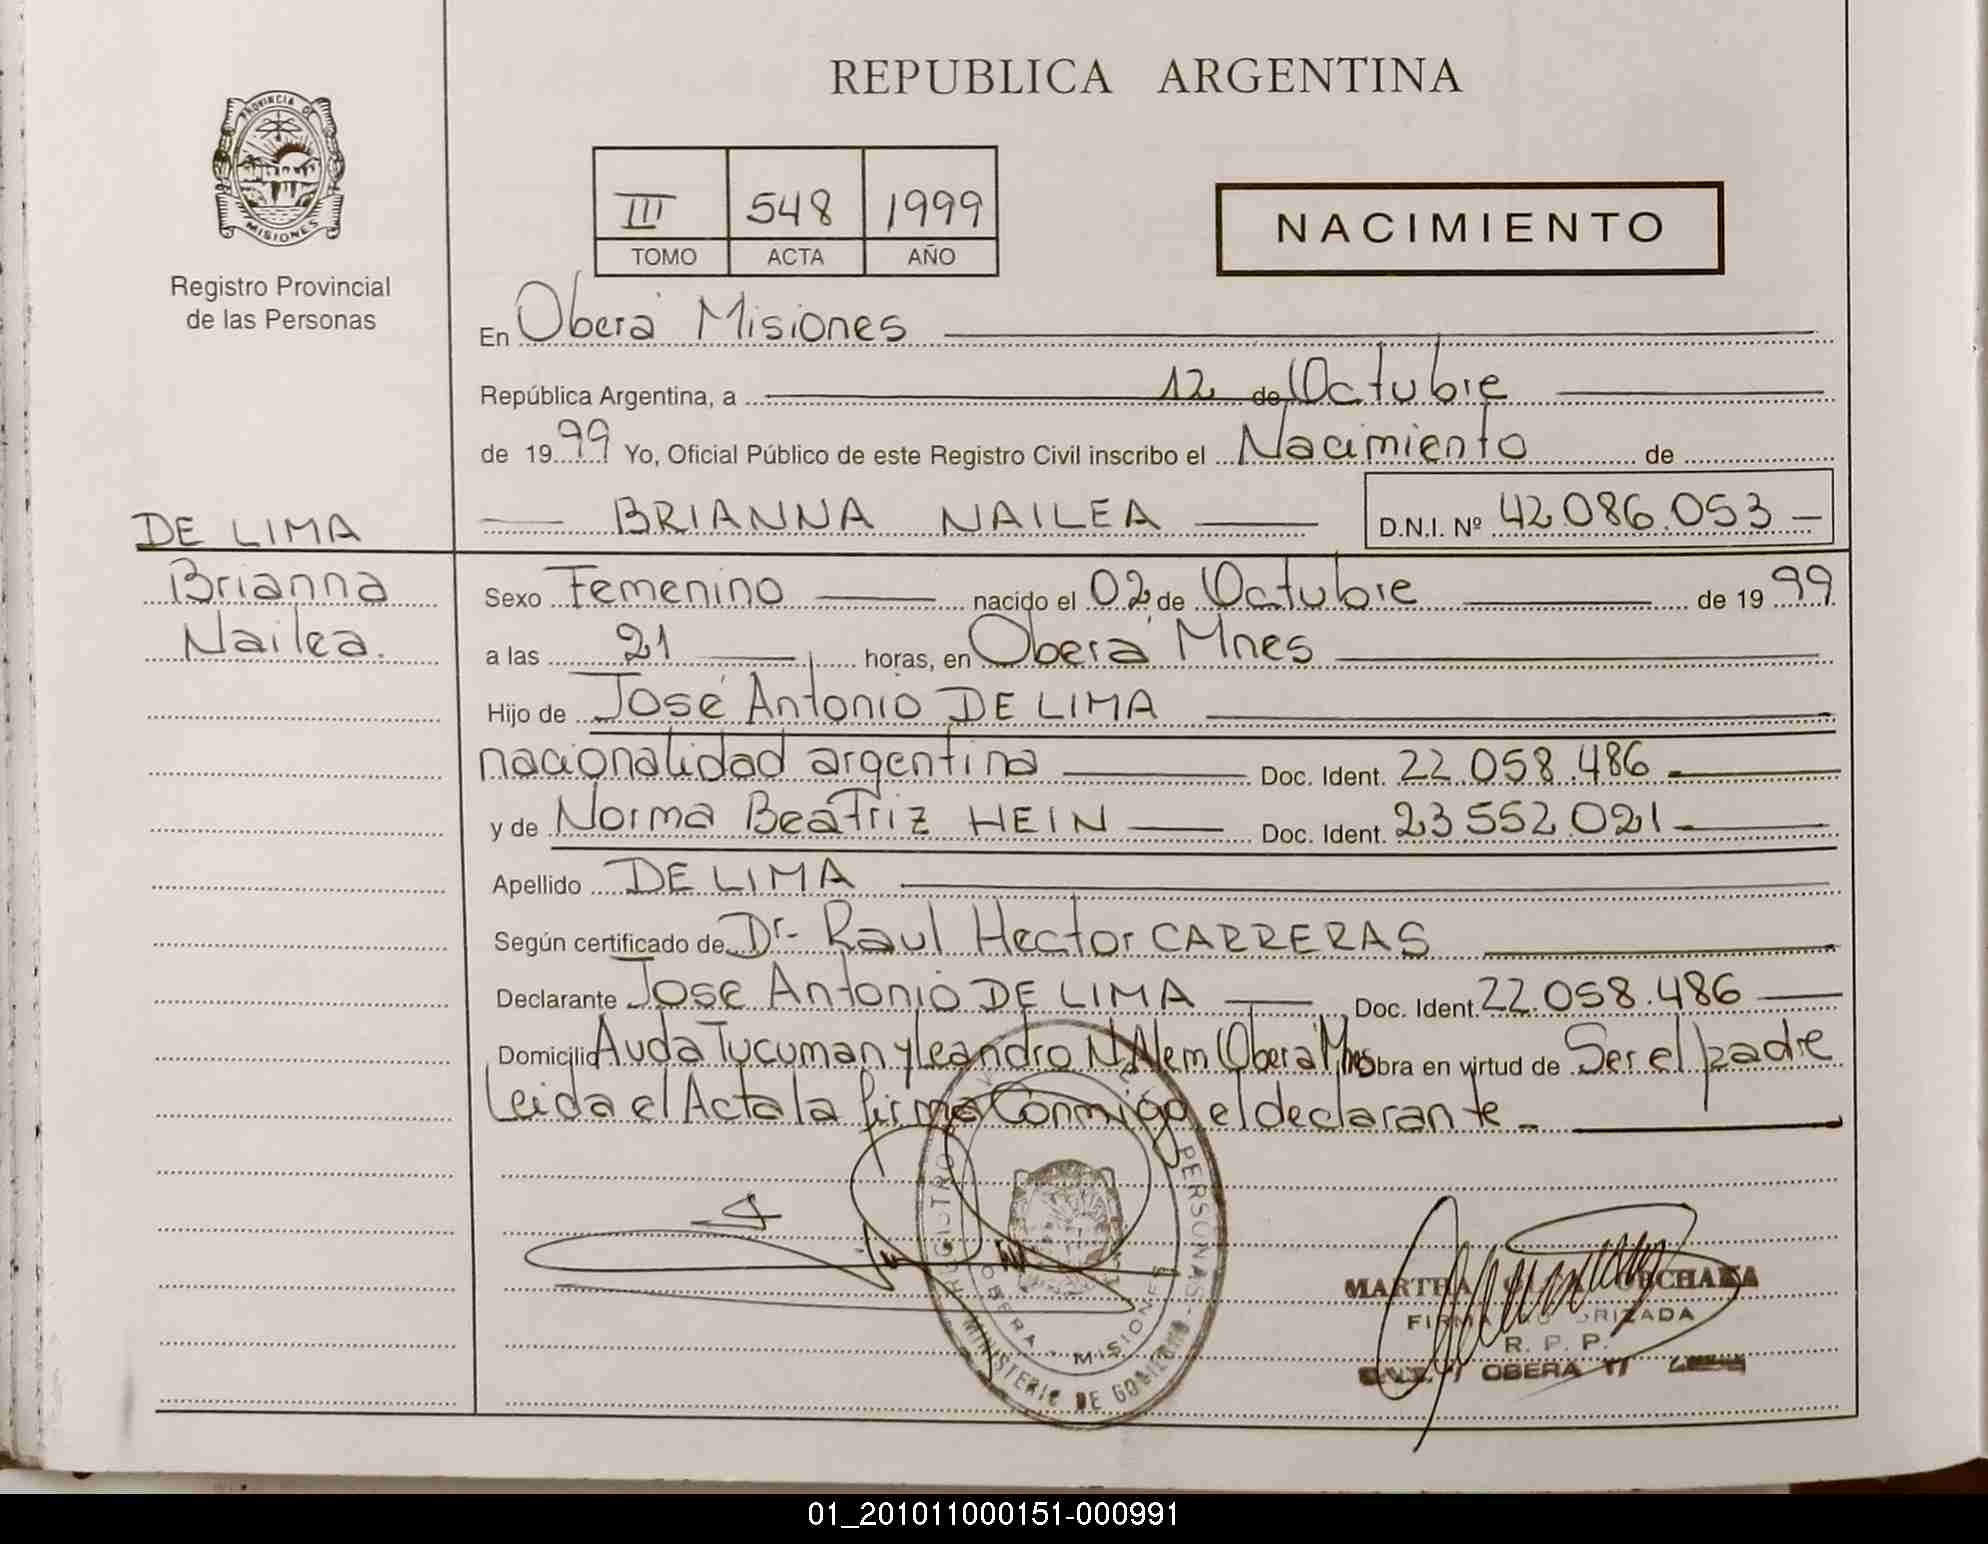 REPUBLICA ARGENTINA
PROVINCIA DE
MISIONES
Registro Provincial
de las Personas
III 548 1999
TOMO ACTA AÑO
NACIMIENTO
En Oberá Misiones
República Argentina, a 12 de Octubre
de 1999 Yo, Oficial Público de este Registro Civil inscribo el Nacimiento de
BRIANNA NAILEA D.N.I. Nº 42.086.053
DE LIMA
Brianna
Nailea.
Sexo Femenino nacido el 02 de Octubre de 1999
a las 21 horas, en Oberá Mnes
Hijo de José Antonio DE LIMA
nacionalidad argentina Doc. Ident. 22.058.486
y de Norma Beatriz HEIN Doc. Ident. 23.552.021
Apellido DE LIMA
Según certificado de Dr. Raul Hector CARRERAS
Declarante Jose Antonio DE LIMA Doc. Ident. 22.058.486
Domicilio Avda Tucuman y Leandro N Alem Oberá Mnes obra en virtud de Ser el padre
Leida el Acta la firma Conmigo el declarante
PERSONAS
OBERA MISIONES
MINISTERIO DE GOBIERNO
MARTHA
FIRMA AUTORIZADA
R. P. P.
OBERA
01_201011000151-000991